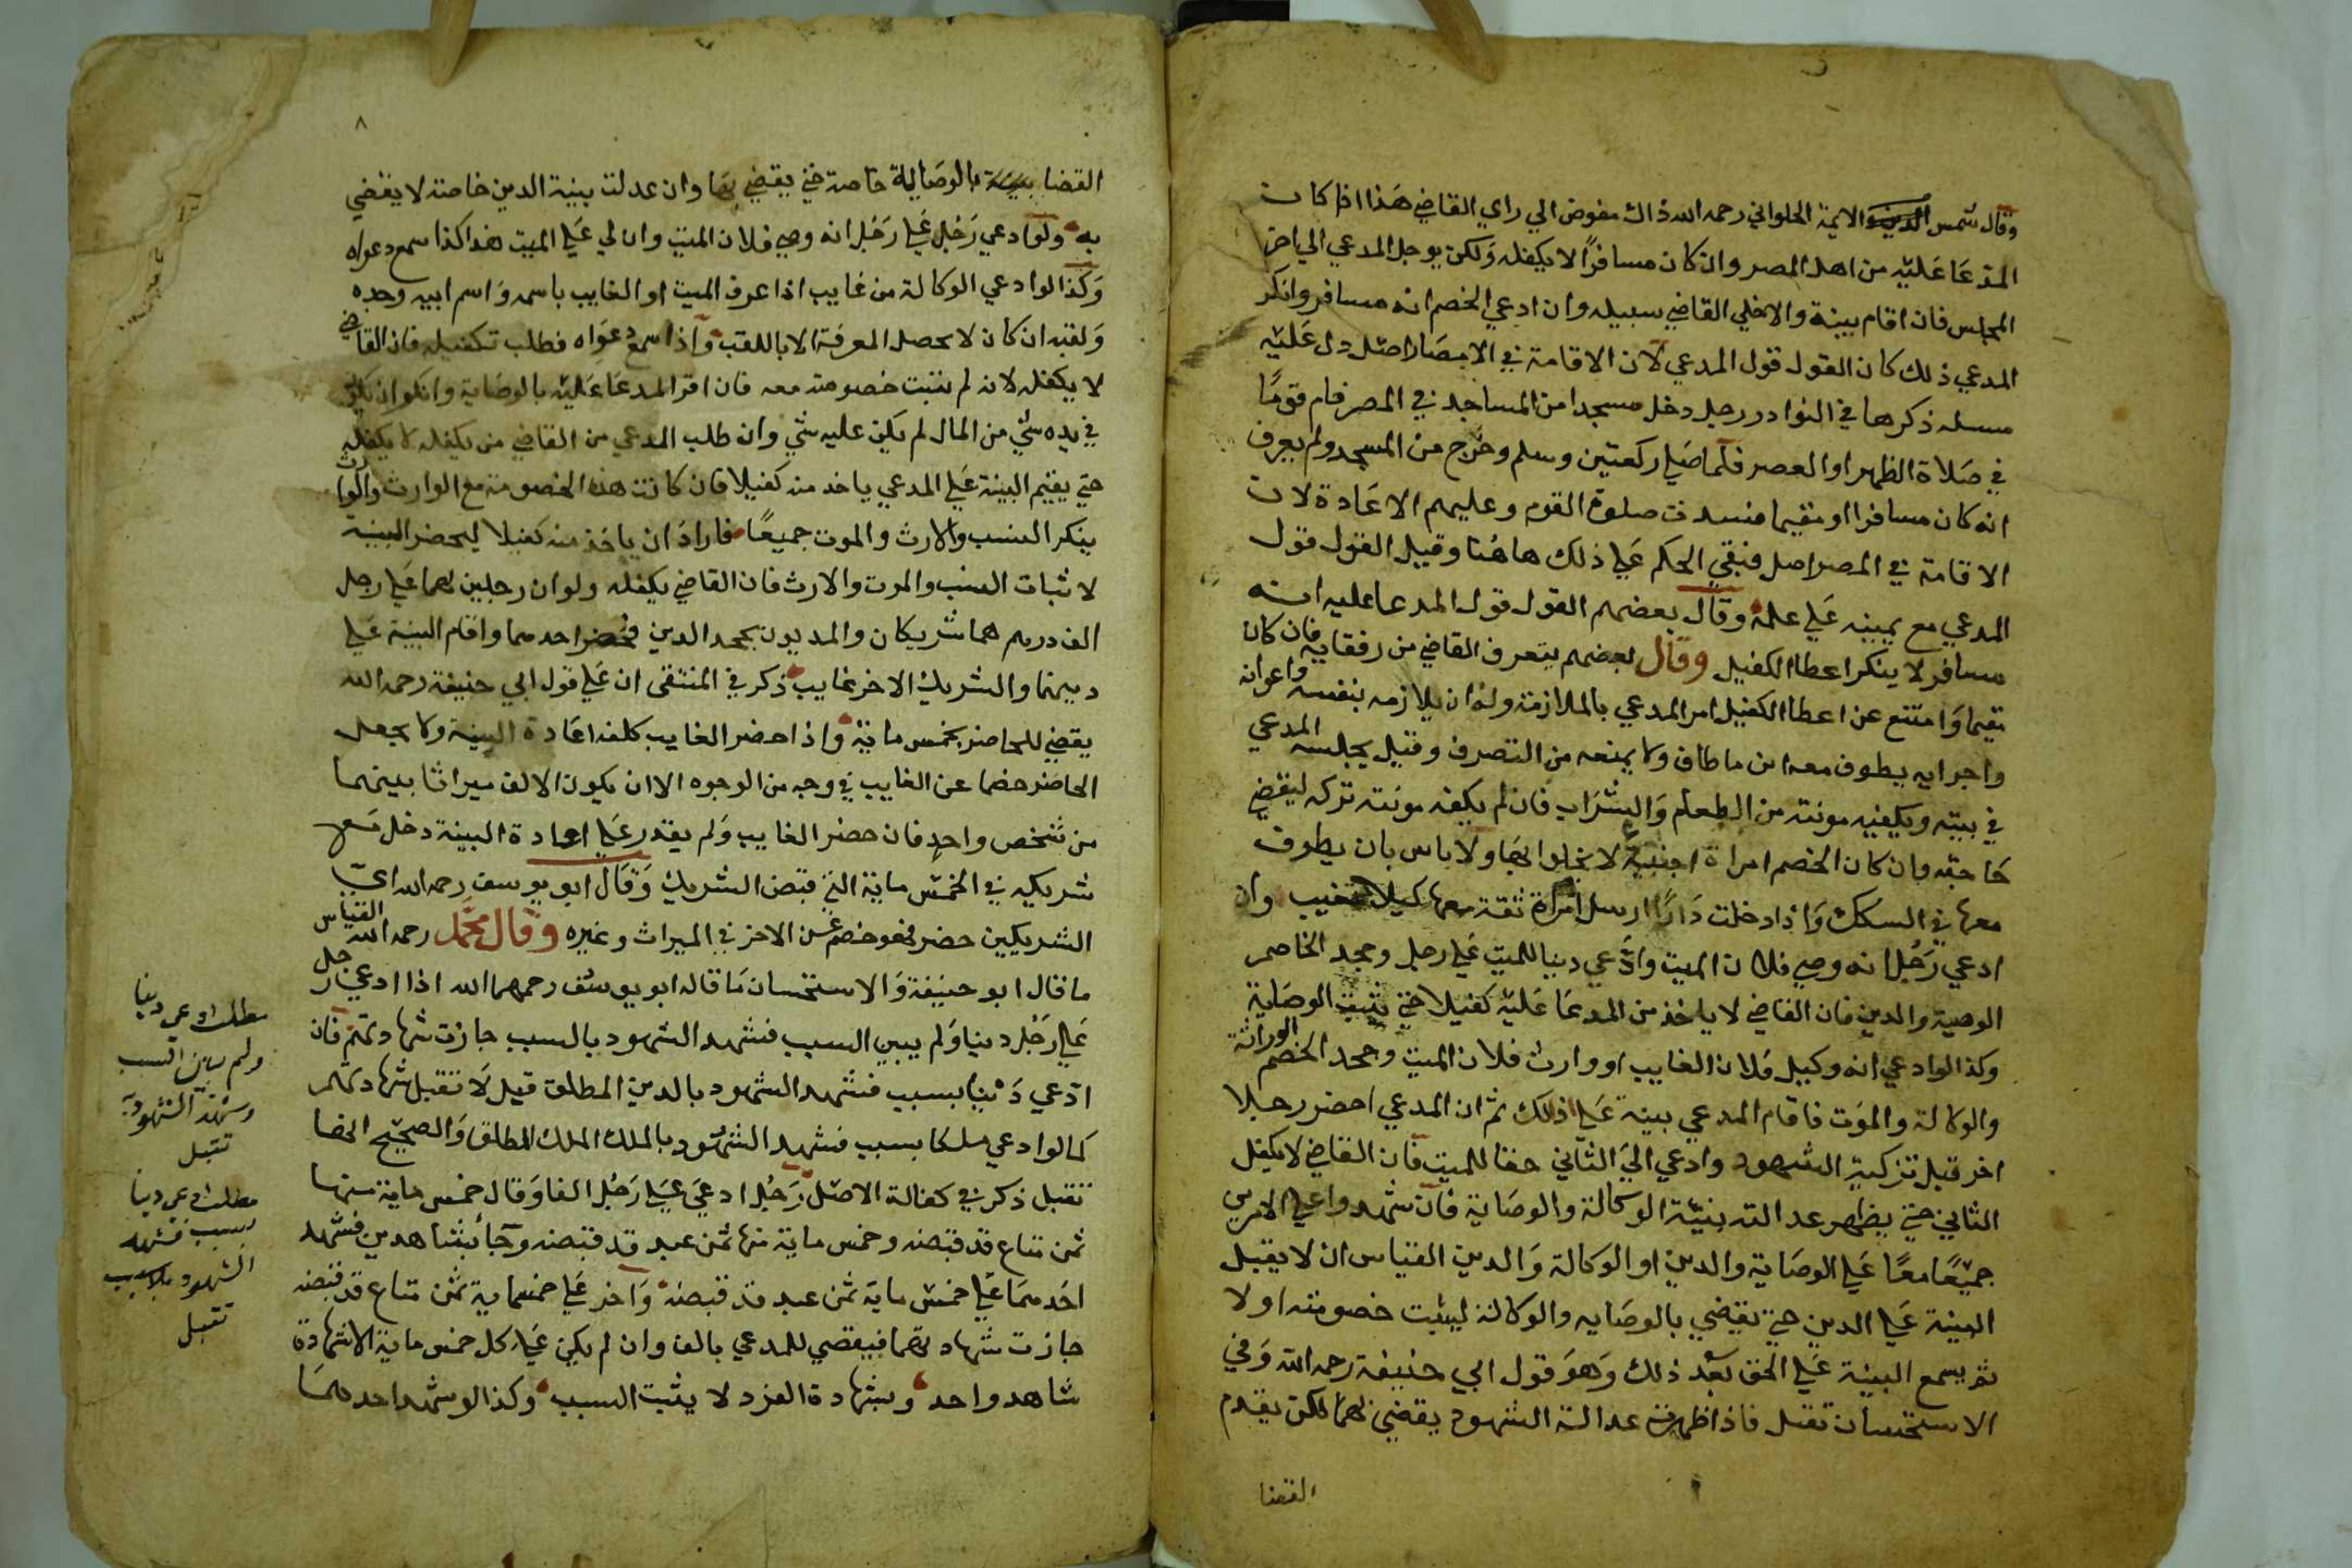 وقال شمس الايمة الحلواني رحمه الله ذاك مفوض الي راي القاضي هذا اذا كان
المدعا عليه من اهل المصر وان كان مسافرا لا يكفله ولكن يوجل المدعي الي اخر
المجلس فان اقام بينة والا خلي القاضي سبيله وان ادعي الخصم انه مسافر وانكر
المدعي ذلك كان القول قول المدعي لان الاقامة في الامصار اصل دل عليه
مسله ذكرها في النوادر رجل دخل مسجدا من المساجد في المصر فام قوما
في صلاة الظهر او العصر فلما صلي ركعتين وسلم وخرج من المسجد ولم يعرف
انه كان مسافرا او مقيما فسدت صلوة القوم وعليهم الاعادة لان
الاقامة في المصر اصل فبقي الحكم علي ذلك هاهنا وقيل القول قول
المدعي مع يمينه علي علمه وقال بعضهم القول قول المدعا عليه انه
مسافر لا ينكر اعطا الكفيل وقال بعضهم يتعرف القاضي من رفقايه فان كان
مقيما وامتنع عن اعطا الكفيل امر المدعي بالملازمة وله ان يلازمه بنفسه واعوانه
واجرايه يطوف معه اين ما طاف ولا يمنعه من التصرف وقيل يجلسه المدعي
في بيته ويكفيه مونته من الطعام والشراب فان لم يكفه مونته تركه ليقضي
حاجته وان كان الخصم امراة اجنبية لا يخلوا بها ولا باس بان يطوف
معها في السكك واذا دخلت دارا ارسل امراة ثقة معها كيلا تغيب وان
ادعي رجل انه وصي فلان الميت وادعي دينا للميت علي رجل وجحد الخاصم
الوصية والدين فان القاضي لا ياخذ من المدعا عليه كفيلا حتي يثبت الوصاية
وكذا لو ادعي انه وكيل فلان الغايب او وارث فلان الميت وجحد الخصم الوراثة
والوكالة والموت فاقام المدعي بينة علي ذلك ثم ان المدعي احضر رجلا
اخر قبل تزكية الشهود وادعي الي الثاني حقا للميت فان القاضي لا يكفل
الثاني حتي يظهر عدالة بنية الوكالة والوصاية فان شهدوا علي الامرين
جميعا معا علي الوصاية والدين او الوكالة والدين القياس ان لا يقبل
البينة علي الدين حتي يقضي بالوصايه والوكالة ليثبت خصومته اولا
ثم يسمع البينة علي الحق بعد ذلك وهو قول ابي حنيفة رحمه الله وفي
الاستحسان تقبل فاذا ظهرت عدالة الشهود يقضي بهما لكن يقدم
القضا
٨
القضا بالوصاية خاصة حتي يقضي بها وان عدلت بينة الدين خاصة لا يقضي
به ولو ادعي رجل علي رجل انه وصي فلان الميت وان لي علي الميت هذا كذا سمع دعواه
وكذا لو ادعي الوكالة من غايب اذا عرف الميت او الغايب باسمه واسم ابيه وجده
ولقبه ان كان لا يحصل المعرفة الا باللقب واذا سمع دعواه فطلب تكفيله فان القاضي
لا يكفله لانه لم يثبت خصومته معه فان اقر المدعا عليه بالوصاية وانكر ان يكون
في يده شي من المال لم يكن عليه شي وان طلب المدعي من القاضي من يكفله لا يكفله
حتي يقيم البينة علي المدعي ياخذ منه كفيلا فان كانت هذه الخصومة مع الوارث والوارث
ينكر النسب والارث والموت جميعا فاراد ان ياخذ منه كفيلا ليحضر البينة
لاثبات النسب والموت والارث فان القاضي يكفله ولو ان رجلين لهما علي رجل
الف درهم هما شريكان والمديون يجحد الدين فحضر احدهما واقام البينة علي
دينهما والشريك الاخر غايب ذكر في المنتقي ان علي قول ابي حنيفة رحمه الله
يقضي للحاضر بخمس ماية واذا حضر الغايب كلف اعادة البينة ولا يجعل
الحاضر خصما عن الغايب في وجه من الوجوه الا ان يكون الالف ميراثا بينهما
من شخص واحد فان حضر الغايب ولم يقدر علي اعادة البينة دخل مع
شريكه في الخمس ماية التي قبض الشريك وقال ابو يوسف رحمه الله اي
الشريكين حضر فهو خصم عن الاخر في الميراث وغيره وقال محمد رحمه الله القياس
ما قال ابو حنيفة والاستحسان ما قاله ابو يوسف رحمهما الله اذا ادعي رجل
علي رجل دينا ولم يبين السبب فشهد الشهود بالسبب جازت شهادتهم فان
ادعي دينا بسبب فشهد الشهود بالدين المطلق قيل لا تقبل شهادتهم
كما لو ادعي ملكا بسبب فشهد الشهود بالملك الملك المطلق والصحيح انها
تقبل ذكر في كفالة الاصل رجل ادعي علي رجل الفا وقال خمس ماية منها
ثمن متاع قد قبضه وخمس ماية منها ثمن عبد قد قبضه وجا بشاهدين فشهد
احدهما علي خمس ماية ثمن عبد قد قبضه واخر علي خمسماية ثمن متاع قد قبضه
جازت شهادتهما فيقضي للمدعي بالف وان لم يكن علي كل خمس ماية الا شهادة
شاهد واحد وبشهادة الفرد لا يثبت السبب وكذا لو شهد احدهما
مطلب ادعي دينا
ولم يبين السبب
وشهد الشهود به
تقبل
مطلب ادعي دينا
بسبب فشهد
الشهود بلا سبب
تقبل